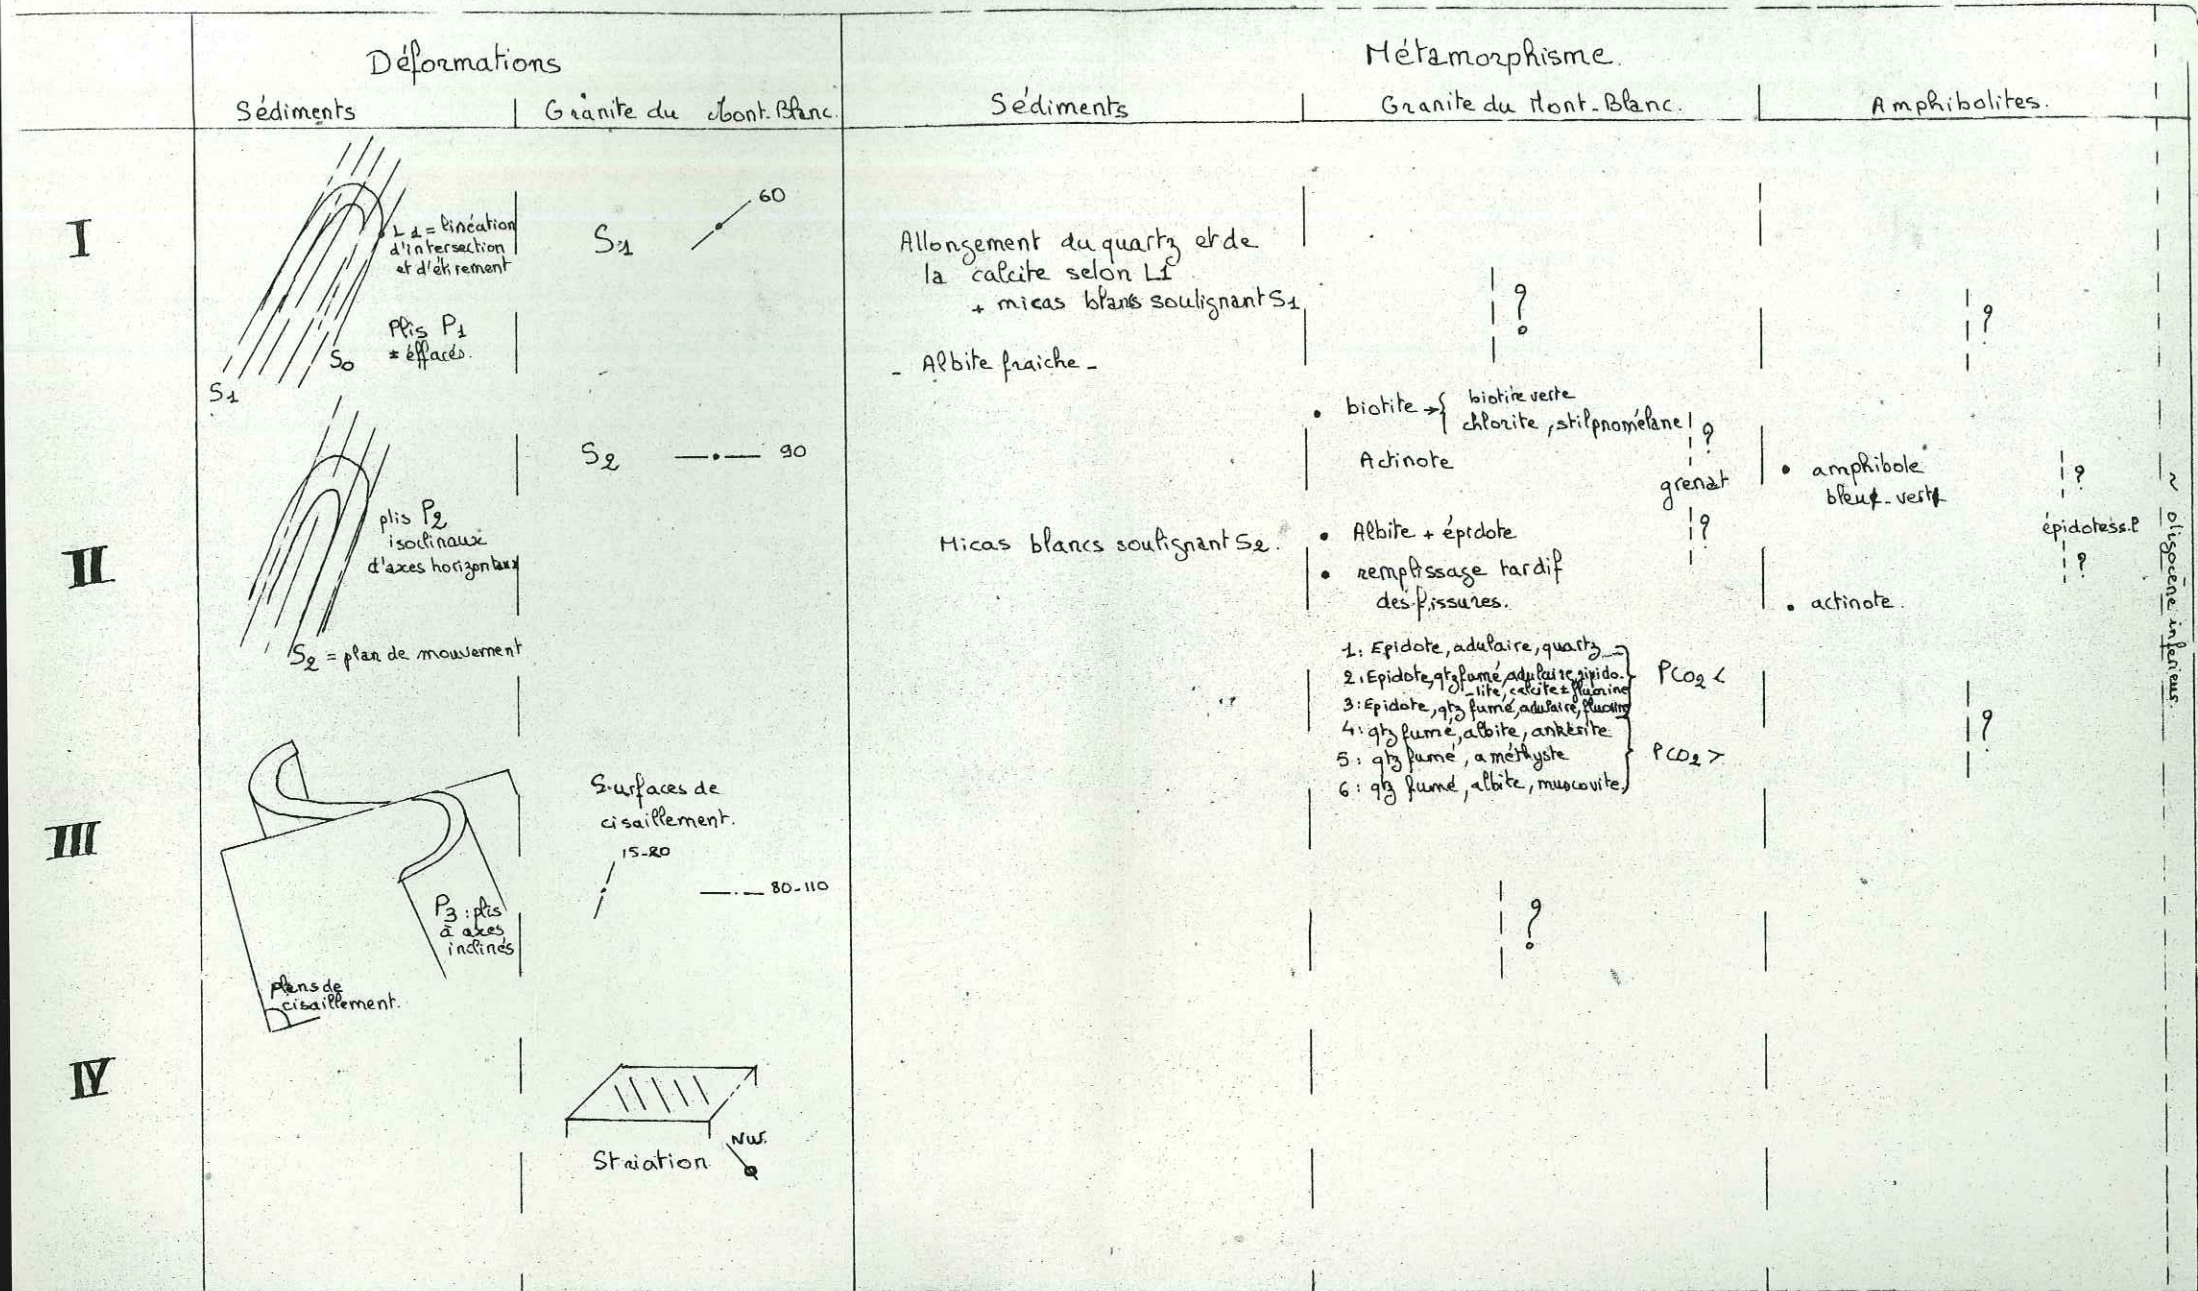 Déformations
Métamorphisme.
Sédiments
Granite du Mont-Blanc.
Sédiments
Granite du Mont-Blanc.
Amphibolites.
I
L1 = linéation
d'intersection
et d'étirement
Plis P1
± éffacés.
S0
S1
S1
60
Allongement du quartz et de
la calcite selon L1
+ micas blancs soulignant S1
- Albite fraiche -
?
?
II
plis P2
isoclinaux
d'axes horizontaux
S2 = plan de mouvement
S2
90
Micas blancs soulignant S2.
• biotite → { biotite verte
chlorite, stilpnomélane
Actinote
?
grenat
?
• Albite + épidote
• remplissage tardif
des fissures.
1: Epidote, adulaire, quartz
2: Epidote, qtz fumé, adulaire, ripido-
-lite, calcite ± fluorine
3: Epidote, qtz fumé, adulaire, fluorine
4: qtz fumé, albite, ankérite
5: qtz fumé, améthyste
6: qtz fumé, albite, muscovite
PCO2 <
PCO2 >
• amphibole
bleu-vert
• actinote.
?
épidotes s.l
?
?
~ oligocène inférieur
III
P3 : plis
à axes
inclinés
plans de
cisaillement.
Surfaces de
cisaillement.
15-20
80-110
?
IV
Striation
NW.